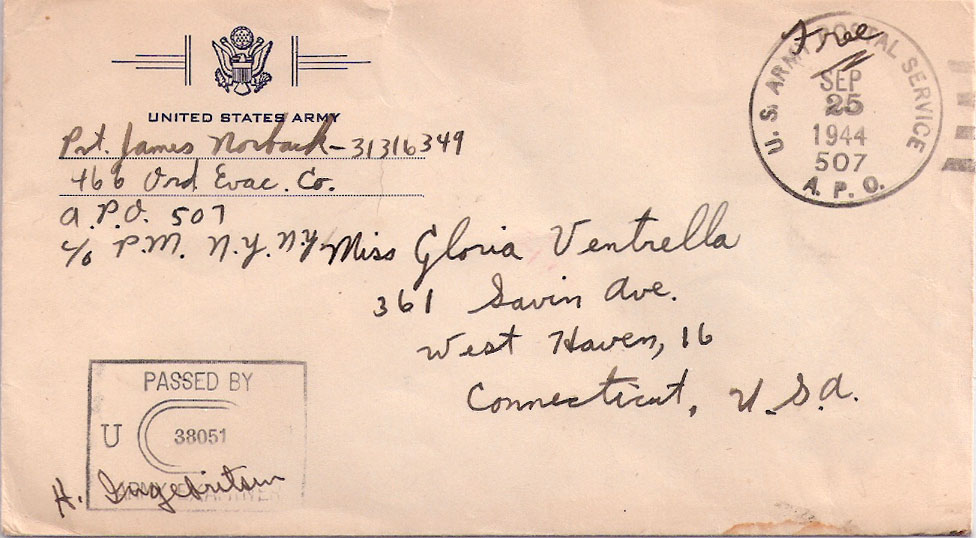 UNITED STATES ARMY
Pvt. James Norback - 31316349
466 Ord. Evac. Co.
A.P.O. 507
c/o P.M. N.Y. N.Y.
Free
U. S. ARMY POSTAL SERVICE
SEP
25
1944
507
A. P. O.
Miss Gloria Ventrella
361 Savin Ave.
West Haven, 16
Connecticut, U.S.A.
PASSED BY
U 38051
ARMY EXAMINER
H. Ingebritsen